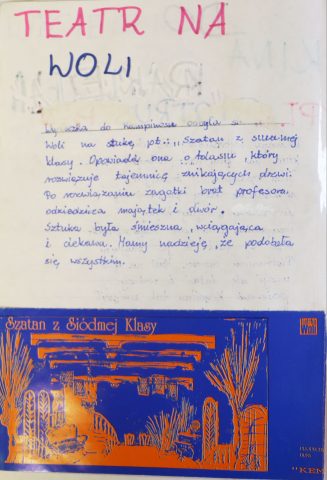 TEATR NA
WOLI
do kampinosu odbyła
Woli na sztukę pt: ,,Szatan z siódmej
klasy. Opowiada ona o Adasiu, który
rozwiązuje tajemnicę znikających drzwi.
Po rozwiązaniu zagatki brat profesora
odziedzicza majątek i dwór.
Sztuka była śmieszna, wciągająca
i ciekawa. Mamy nadzieję, że podobała
się wszystkim.
Szatan z Siódmej Klasy